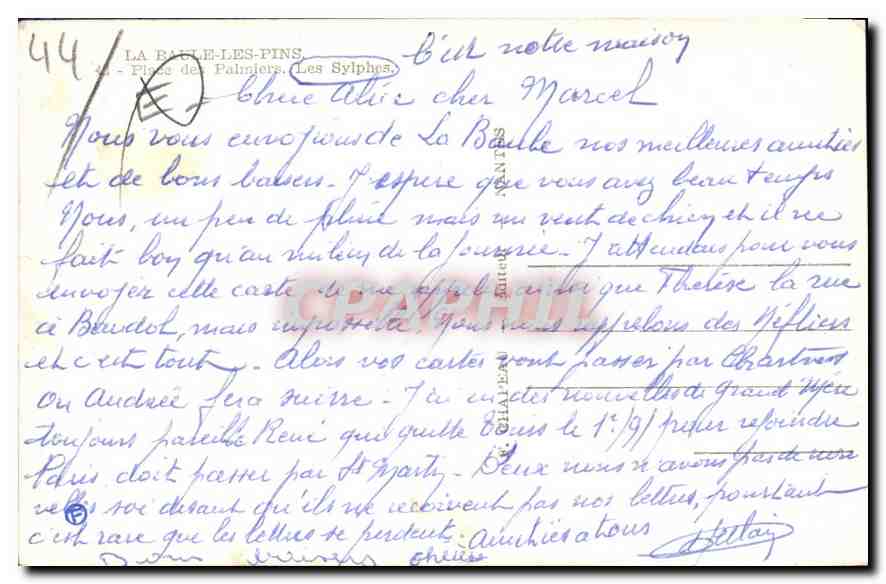 44/
LA BAULE-LES-PINS.
- Place des Palmiers. Les Sylphes.
C'est notre maison
Chère Alice cher Marcel
Nous vous envoyons de La Baule nos meilleures amitiés
et de bons baisers - J'espère que vous avez beau temps
Nous, un peu de pluie mais un vent de chien et il ne
fait bon qu'au milieu de la journée - J'attendais pour vous
envoyer cette carte de me rappeler ainsi que Thérèse la rue
à Bandol, mais impossible Nous nous rappelons des Néfliers
et c'est tout - Alors vos cartes vont passer par Chartres
où Andrée fera suivre - J'ai eu des nouvelles de Grand Mère
toujours pareille René qui quitte le 1er/9/ pour rejoindre
Paris doit passer par St Martin - Deux nous n'avons pas de nou
velles soi disant qu'ils ne reçoivent pas nos lettres, pourtant
c'est rare que les lettres se perdent. Amitiés à tous
Bons baisers
F. CHAPEAU Editeur NANTES
CPAPHIL
F